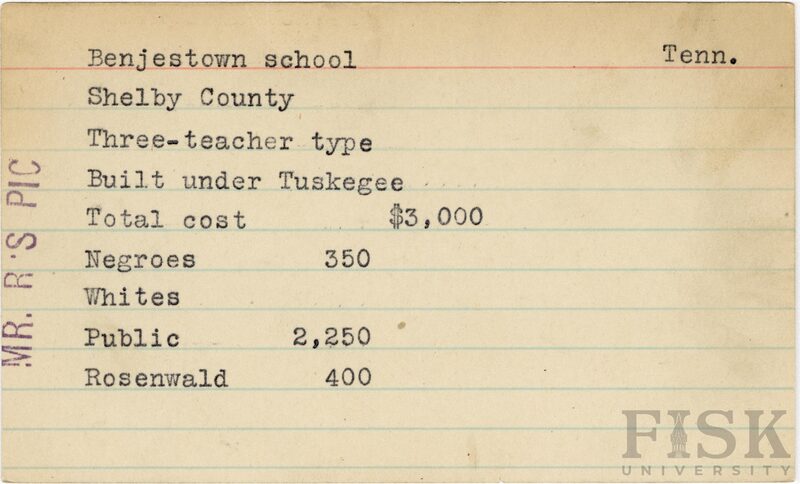 Benjestown school Tenn.
Shelby County
Three-teacher type
Built under Tuskegee
Total cost $3,000
Negroes 350
Whites
Public 2,250
Rosenwald 400
MR. R'S PIC
FISK
UNIVERSITY